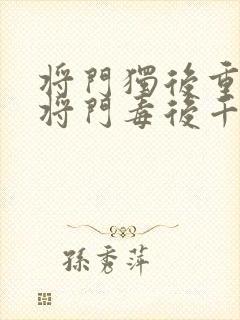 將門獨後重
將門毒後千
孫秀萍